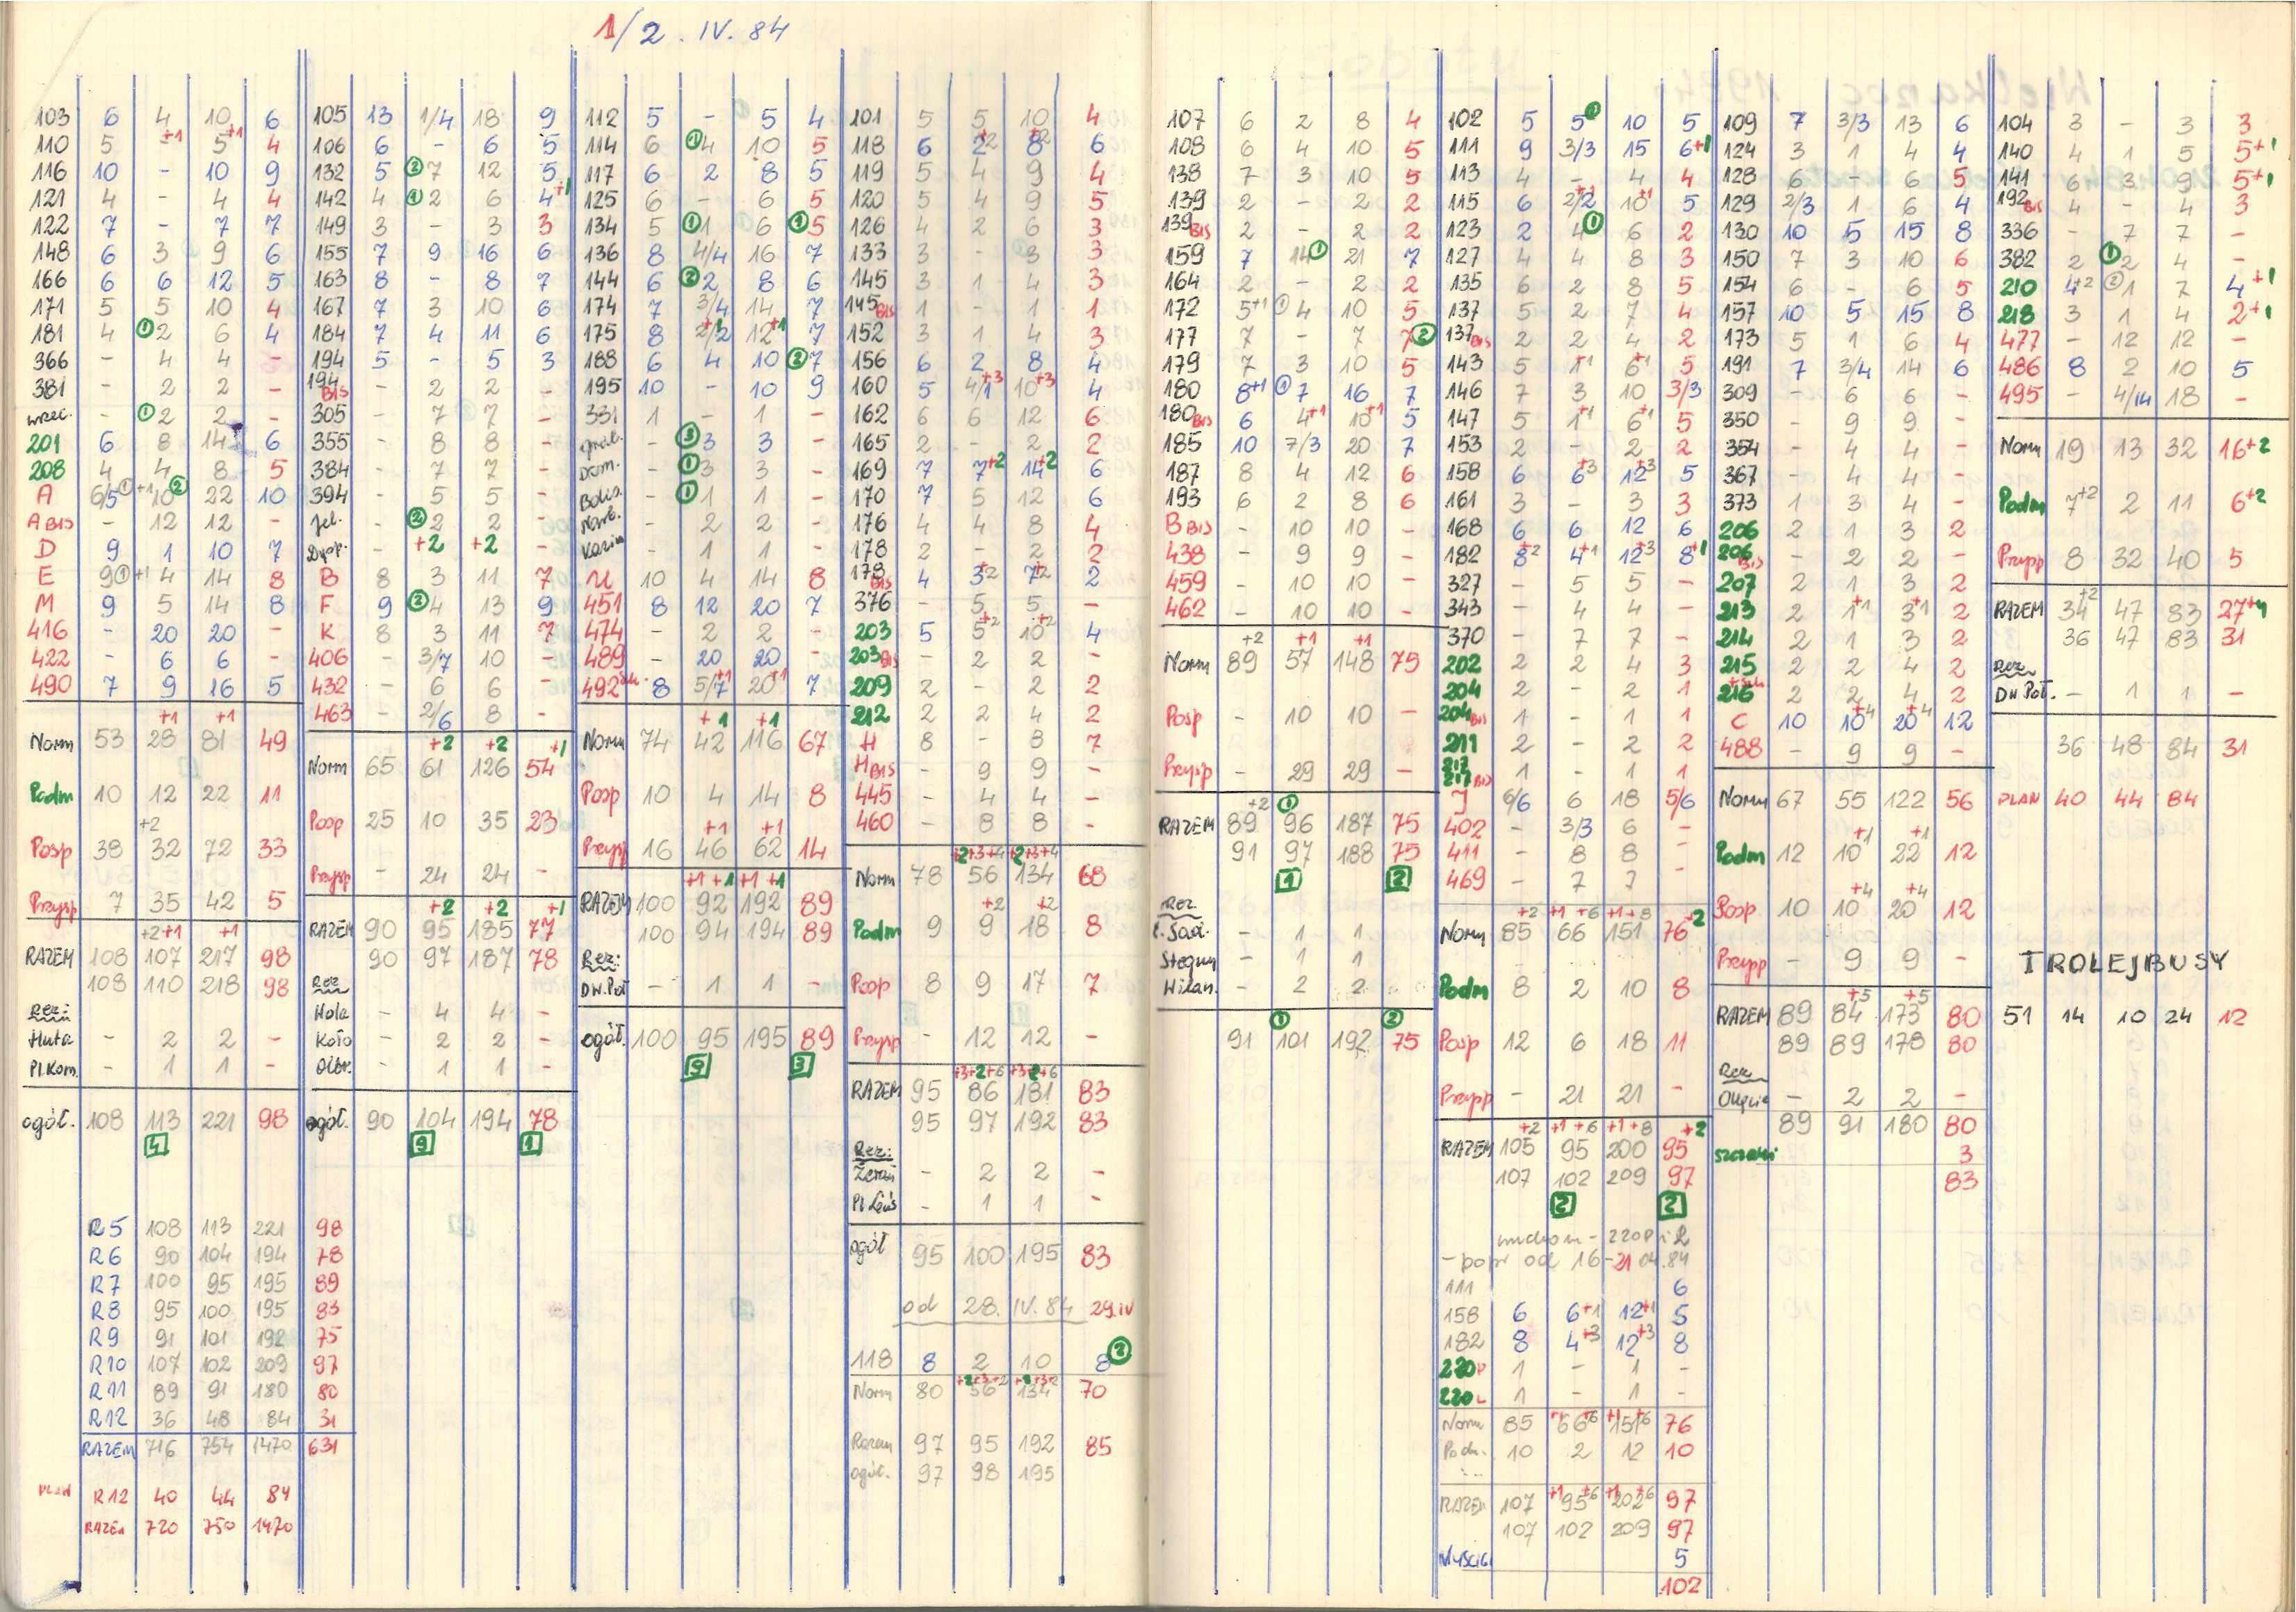 1/2. IV. 84
103 6 4 10 6
110 5 -+1 5+1 4
116 10 - 10 9
121 4 - 4 4
122 7 - 7 7
148 6 3 9 6
166 6 6 12 5
171 5 5 10 4
181 4 ①2 6 4
366 - 4 4 -
381 - 2 2 -
- ①2 2 -
201 6 8 14 6
208 4 4 8 5
A 6/5① +1 10② 22 10
A BIS - 12 12 -
D 9 1 10 7
E 9① +1 4 14 8
M 9 5 14 8
416 - 20 20 -
422 - 6 6 -
490 7 9 16 5
+1 +1
Norm 53 28 81 49
Podm 10 12 22 11
+2
Posp 38 32 72 33
Przysp 7 35 42 5
+2+1 +1
RAZEM 108 107 217 98
108 110 218 98
Rez:
Huta - 2 2 -
Pl.Kom. - 1 1 -
ogół. 108 113 221 98
4
R5 108 113 221 98
R6 90 104 194 78
R7 100 95 195 89
R8 95 100 195 83
R9 91 101 192 75
R10 107 102 209 97
R11 89 91 180 80
R12 36 48 84 31
RAZEM 716 754 1470 631
PLAN R12 40 44 84
RAZEM 720 750 1470
105 13 1/4 18 9
106 6 - 6 5
132 5 ②7 12 5
142 4 ①2 6 4+1
149 3 - 3 3
155 7 9 16 6
163 8 - 8 7
167 7 3 10 6
184 7 4 11 6
194 5 - 5 3
194 BIS - 2 2 -
305 - 7 7 -
355 - 8 8 -
384 - 7 7 -
394 - 5 5 -
Jel. - ②2 2 -
Dysp. - +2 +2 -
B 8 3 11 7
F 9 ②4 13 9
K 8 3 11 7
406 - 3/7 10 -
432 - 6 6 -
463 - 2/6 8 -
+2 +2 +1
Norm 65 61 126 54
Posp 25 10 35 23
Przysp - 24 24 -
+2 +2 +1
RAZEM 90 95 185 77
90 97 187 78
Rez
Hala - 4 4 -
Koło - 2 2 -
Olbr. - 1 1 -
ogół. 90 104 194 78
9 1
112 5 - 5 4
114 6 ①4 10 5
117 6 2 8 5
125 6 - 6 5
134 5 ①1 6 ①5
136 8 4/4 16 7
144 6 ②2 8 6
174 7 3/4 14 7
175 8 2/2+1 12+1 7
188 6 4 10 ②7
195 10 - 10 9
331 1 - 1 -
- ③3 3 -
Dom. - ①3 3 -
- ①1 1 -
Narb. - 2 2 -
- 1 1 -
U 10 4 14 8
451 8 12 20 7
474 - 2 2 -
489 - 20 20 -
492 8 5/7+1 20+1 7
+1 +1
Norm 74 42 116 67
Posp 10 4 14 8
+1 +1
Przysp 16 46 62 14
+1 +1 +1 +1
RAZEM 100 92 192 89
100 94 194 89
Rez:
DW.Poł - 1 1 -
ogół. 100 95 195 89
9 3
101 5 5 10 4
118 6 2+2 8+2 6
119 5 4 9 4
120 5 4 9 5
126 4 2 6 3
133 3 - 3 3
145 3 1 4 3
145 BIS 1 - 1 1
152 3 1 4 3
156 6 2 8 4
160 5 4/1+3 10+3 4
162 6 6 12 6
165 2 - 2 2
169 7 7+2 14+2 6
170 7 5 12 6
176 4 4 8 4
178 2 - 2 2
178 BIS 4 3+2 7+2 2
376 - 5 5 -
203 5 5+2 10+2 4
203 BIS - 2 2 -
209 2 - 2 2
212 2 2 4 2
H 8 - 8 7
H BIS - 9 9 -
445 - 4 4 -
460 - 8 8 -
+2+3+4 +2+3+4
Norm 78 56 134 68
+2 +2
Podm 9 9 18 8
Posp 8 9 17 7
Przysp - 12 12 -
+3+2+6 +3+2+6
RAZEM 95 86 181 83
95 97 192 83
Rez:
Żerań - 2 2 -
- 1 1 -
ogół 95 100 195 83
od 28. IV. 84 29.IV
118 8 2 10 8②
+2+3+2 +2+3+2
Norm 80 56 134 70
Razem 97 95 192 85
ogół. 97 98 195
107 6 2 8 4
108 6 4 10 5
138 7 3 10 5
139 2 - 2 2
139 BIS 2 - 2 2
159 7 14① 21 7
164 2 - 2 2
172 5+1 ①4 10 5
177 7 - 7 7②
179 7 3 10 5
180 8+1 ①7 16 7
180 BIS 6 4+1 10+1 5
185 10 7/3 20 7
187 8 4 12 6
193 6 2 8 6
B BIS - 10 10 -
438 - 9 9 -
459 - 10 10 -
462 - 10 10 -
+2 +1 +1
Norm 89 57 148 75
Posp - 10 10 -
Przysp - 29 29 -
+2 ①
RAZEM 89 96 187 75
91 97 188 75
1 2
Rez
- 1 1
Stegny - 1 1
Wilan. - 2 2
① ②
91 101 192 75
102 5 5② 10 5
111 9 3/3 15 6+1
113 4 - 4 4
115 6 2/2+1 10+1 5
123 2 4① 6 2
127 4 4 8 3
135 6 2 8 5
137 5 2 7 4
137 BIS 2 2 4 2
143 5 1+1 6+1 5
146 7 3 10 3/3
147 5 1+1 6+1 5
153 2 - 2 2
158 6 6+3 12+3 5
161 3 - 3 3
168 6 6 12 6
182 8+2 4+1 12+3 8+1
327 - 5 5 -
343 - 4 4 -
370 - 7 7 -
202 2 2 4 3
204 2 - 2 1
204 BIS 1 - 1 1
211 2 - 2 2
217 BIS 1 - 1 1
J 6/6 6 18 5/6
402 - 3/3 6 -
411 - 8 8 -
469 - 7 7 -
+2 +1 +6 +1+8 +2
Norm 85 66 151 76
Podm 8 2 10 8
Posp 12 6 18 11
Przysp - 21 21 -
+2 +1 +6 +1+8 +2
RAZEM 105 95 200 95
107 102 209 97
2 2
- 220P i L
- popr od 16-21 04.84
111 6
158 6 6+1 12+1 5
182 8 4+3 12+3 8
220P 1 - 1 -
220L 1 - 1 -
Norm 85 66+6 151+6 76
Podm. 10 2 12 10
RAZEM 107 +1 95+6 +1 202+6 97
107 102 209 97
5
102
109 7 3/3 13 6
124 3 1 4 4
128 6 - 6 5
129 2/3 1 6 4
130 10 5 15 8
150 7 3 10 6
154 6 - 6 5
157 10 5 15 8
173 5 1 6 4
191 7 3/4 14 6
309 - 6 6 -
350 - 9 9 -
354 - 4 4 -
367 - 4 4 -
373 1 3 4 -
206 2 1 3 2
206 BIS - 2 2 -
207 2 1 3 2
213 2 1+1 3+1 2
214 2 1 3 2
215 2 2 4 2
216 2 2 4 2
C 10 10+4 20+4 12
488 - 9 9 -
Norm 67 55 122 56
+1 +1
Podm 12 10 22 12
+4 +4
Posp 10 10 20 12
Przysp - 9 9 -
+5 +5
RAZEM 89 84 173 80
89 89 178 80
Rez
Okęcie - 2 2 -
89 91 180 80
3
83
104 3 - 3 3
140 4 1 5 5+1
141 6 3 9 5+1
192 BIS 4 - 4 3
336 - 7 7 -
382 2 ①2 4 -
210 4+2 ②1 7 4+1
218 3 1 4 2+1
477 - 12 12 -
486 8 2 10 5
495 - 4/14 18 -
Norm 19 13 32 16+2
Podm 7+2 2 11 6+2
Przysp 8 32 40 5
+2
RAZEM 34 47 83 27+4
36 47 83 31
Rez
DW Poł. - 1 1 -
36 48 84 31
PLAN 40 44 84
TROLEJBUSY
51 14 10 24 12